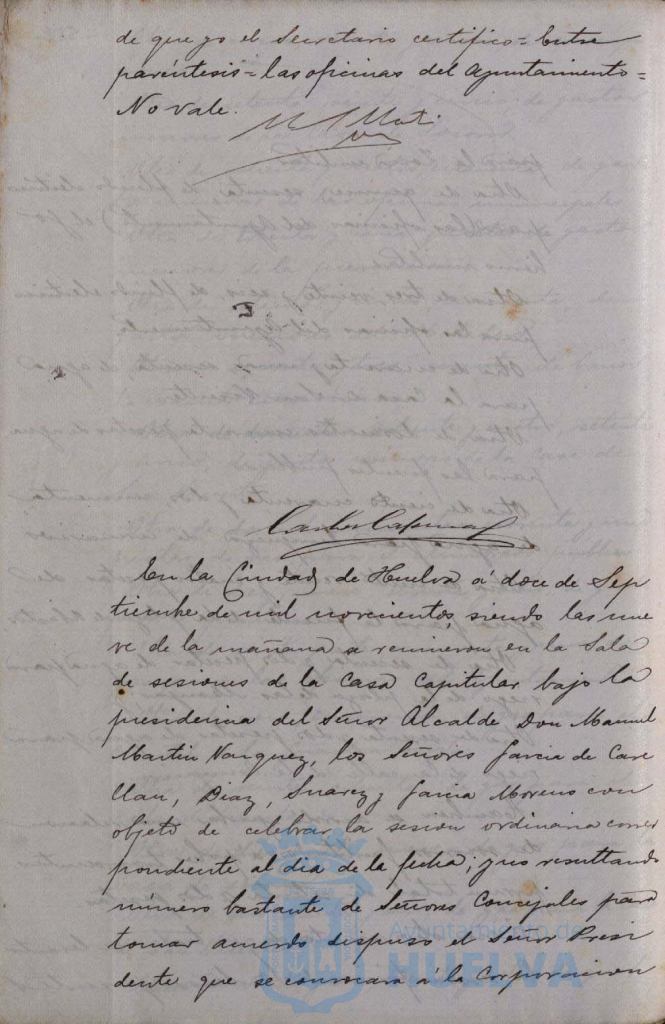 de que yo el Secretario certifico = Entre
paréntesis = las oficinas del Ayuntamiento =
No vale.
En la Ciudad de Huelva á doce de Sep
tiembre de mil novecientos, siendo las nue
ve de la mañana se reunieron en la Sala
de sesiones de la Casa Capitular bajo la
presidencia del Señor Alcalde Don Manuel
Martin Vazquez, los Señores Garcia de Care
llan, Diaz, Suarez y Garcia Moreno con
objeto de celebrar la sesion ordinaria corres
pondiente al dia de la fecha; y no resultando
número bastante de Señores Concejales para
tomar acuerdo dispuso el Señor Presi
dente que se convocara á la Corporacion
Ayuntamiento de
HUELVA